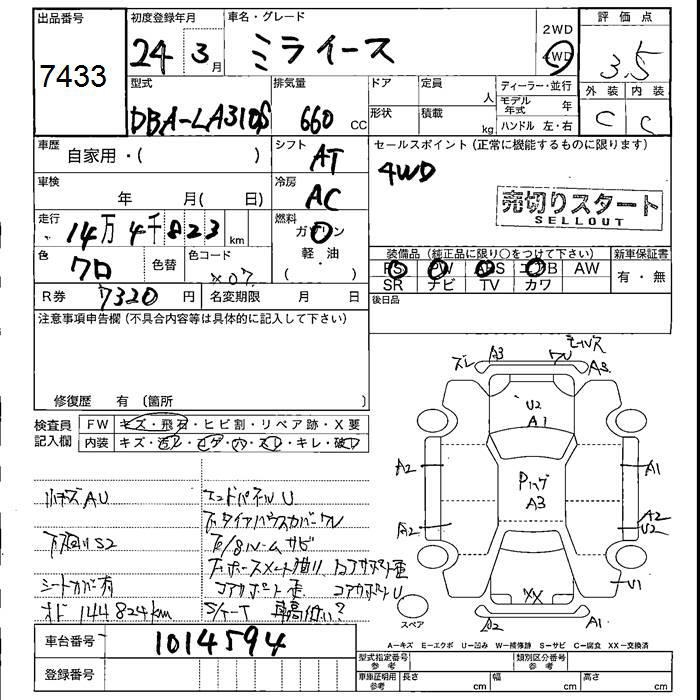 出品番号
7433
初度登録年月
24 3月
車名・グレード
ミライース
2WD
4WD
評価点
3.5
型式
DBA-LA310S
排気量
660 CC
ドア
定員
人
形状
積載
kg
ディーラー・並行
モデル年式 年
ハンドル 左・右
外装
内装
C
C
車歴
自家用・( )
シフト
AT
セールスポイント(正常に機能するものに限ります)
4WD
売切りスタート
SELLOUT
車検
年 月( 日)
冷房
AC
走行
14万4千823 km
燃料
ガソリン
軽・油
( )
色
クロ
色替
色コード
X07
装備品(純正品に限り○をつけて下さい)
PS PW ABS エアB AW
SR ナビ TV カワ
新車保証書
有・無
後日品
R券 7320 円
名変期限 月 日
注意事項申告欄(不具合内容等は具体的に記入して下さい)
修復歴 有(箇所 )
検査員記入欄
FW キズ・飛石・ヒビ割・リペア跡・X要
内装 キズ・汚レ・コゲ・穴・スレ・キレ・破レ
小キズAU
エンドパネルU
下廻りS2
シートカバー有
オド 144824km
車台番号
1014594
登録番号
ズレ
A3
A3
U2
A1
A2
A1
A3
A2
A2
U2
XX
U1
A2
A1
スペア
A-キズ E-エクボ U-凹み W-補修跡 S-サビ C-腐食 XX-交換済
型式指定番号 参考
類別区分番号 参考
車庫証明用 参考
長さ cm
幅 cm
高さ cm